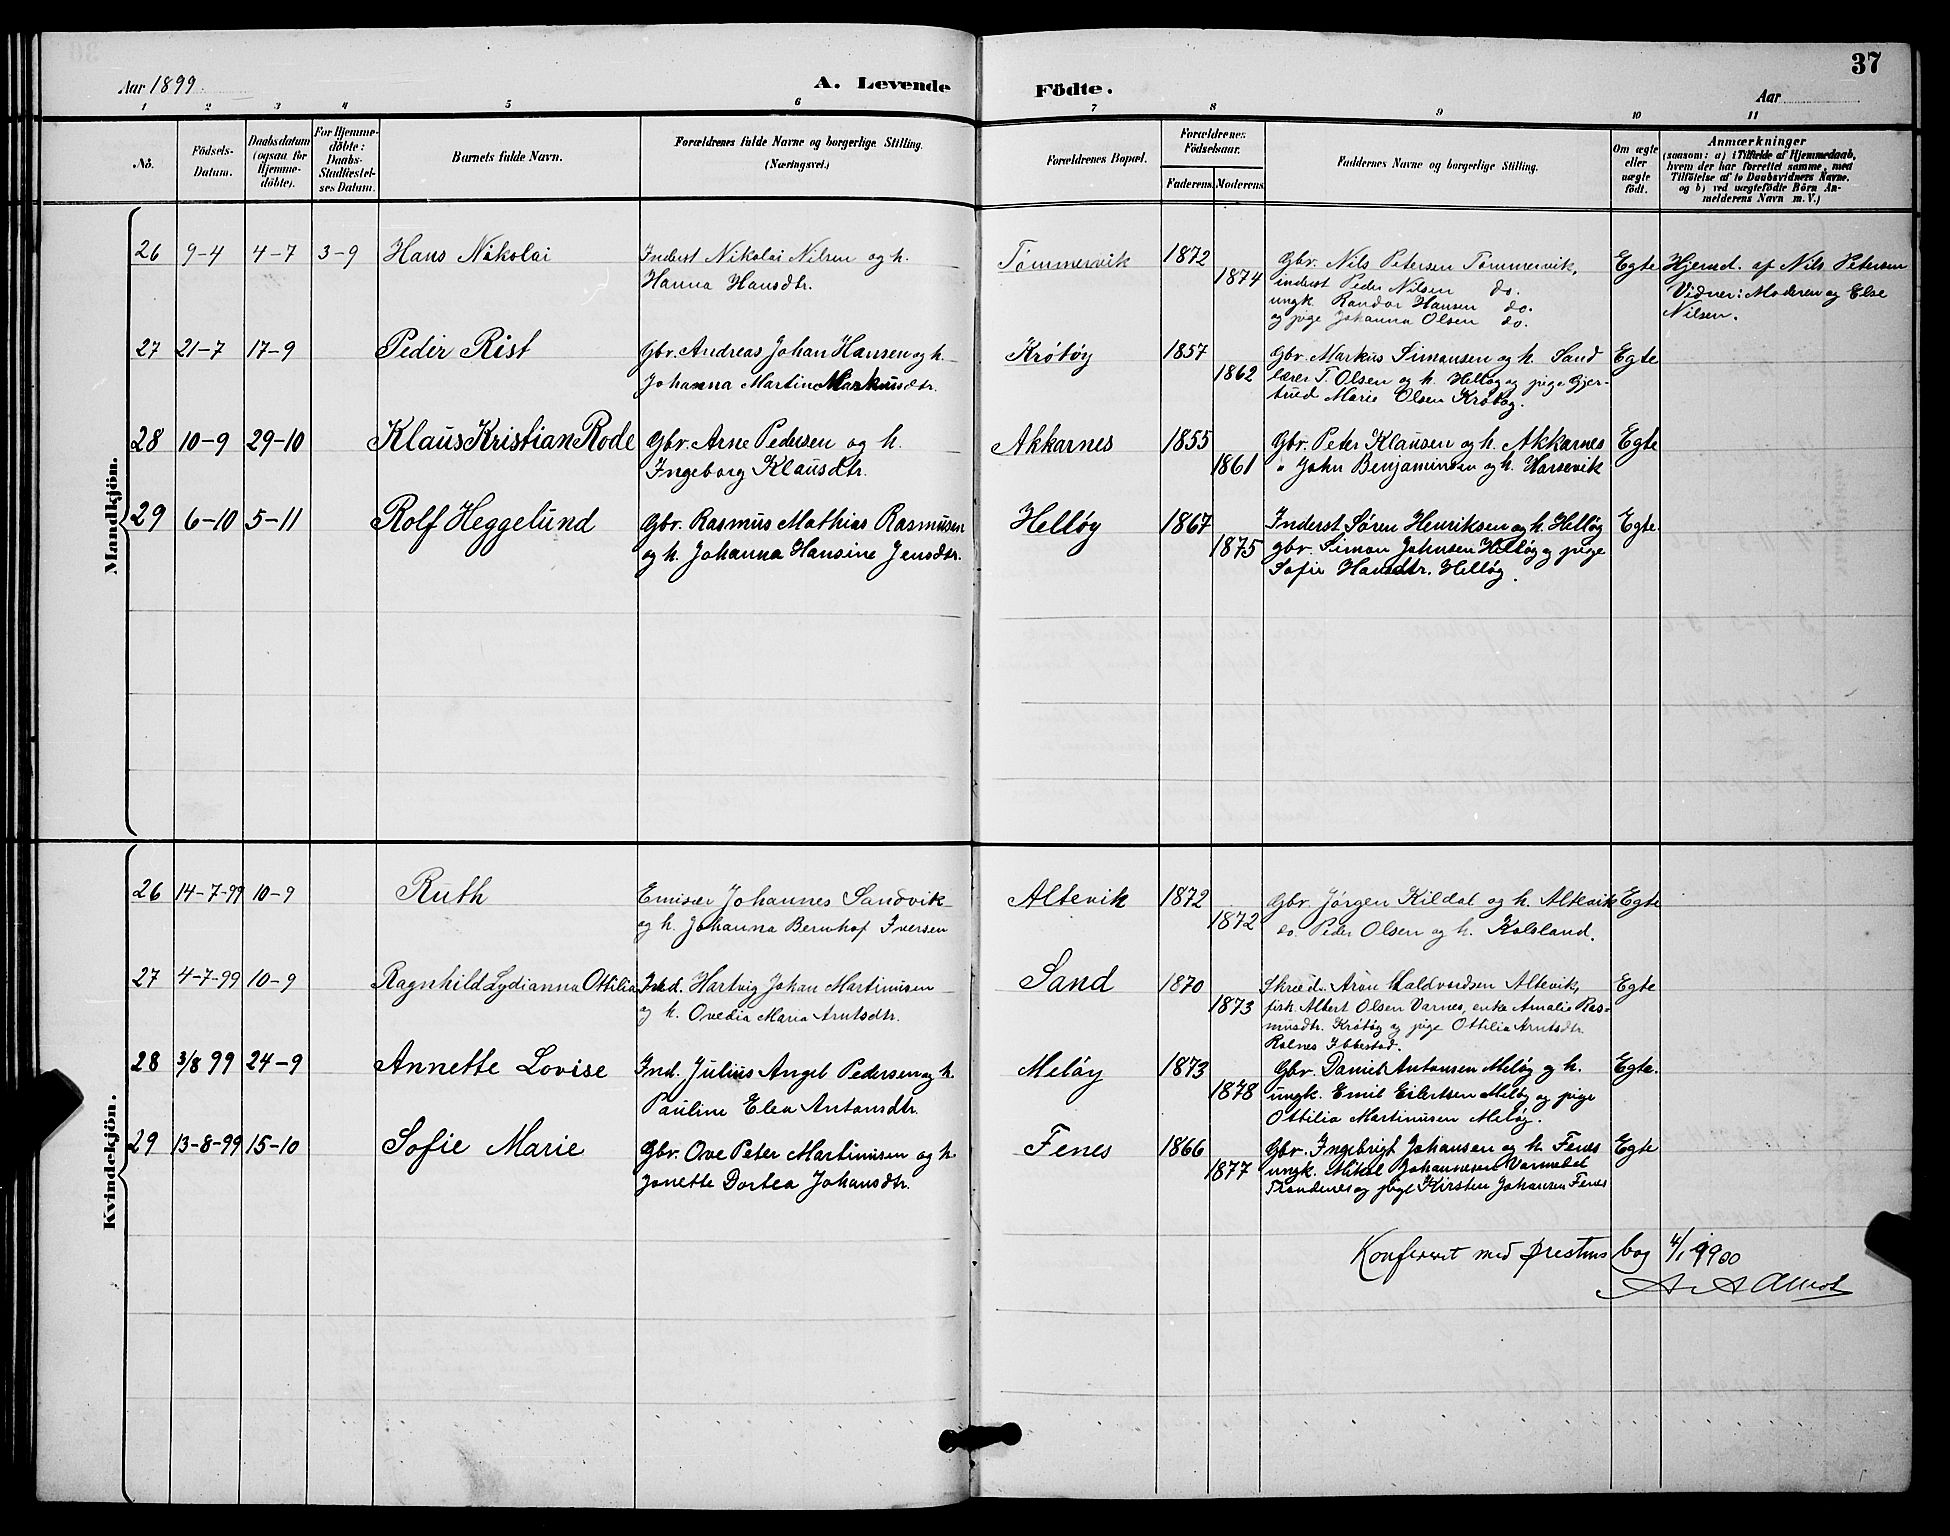 37
Aar 1899.
A. Levende Födte.
Aar
1 2 3 4 5 6 7 8 9 10 11
No.
Födsels-Datum.
Daabsdatum (ogsaa for Hjemme-döbte).
For Hjemme-döbte: Daabs-Stadfæstel-ses Datum.
Barnets fulde Navn.
Forældrenes fulde Navne og borgerlige Stilling.
(Næringsvei.)
Forældrenes Bopæl.
Forældrenes Födselsaar.
Faderens. Moderens.
Faddernes Navne og borgerlige Stilling.
Om ægte eller uægte födt.
Anmærkninger
(saasom: a) i Tilfælde af Hjemmedaab,
hvem der har forrettet samme, med
Tilföielse af to Daabsvidners Navne,
og b) ved uægtefödte Börn An-
melderens Navn m. V.)
Mandkjön.
26 9-4 4-7 3-9 Hans Nikolai Inderst Nikolai Nilsen og h. Tømmervik 1872 Gbr. Nils Petersen Tømmervik, Egte Hjemd. af Nils Petersen
Hanna Hansdtr. 1874 inderst Peder Nilsen do. Vidner: Moderen og Else
ungk. Randor Hansen do. Nilsen.
og pige Johanna Olsen do.
27 21-7 17-9 Peder Rist Gbr. Andreas Johan Hansen og h. Krøtøy 1857 Gbr. Markus Simonsen og h. Sand Egte
Johanna Martine Markusdtr. 1862 lærer T. Olsen og h. Helløy og pige Gjer-
trud Marie Olsen Krøtøy.
28 10-9 29-10 Klaus Kristian Rode Gbr. Arne Pedersen og h. Akkarnes 1855 Gbr. Peter Klausen og h. Akkarnes Egte
Ingeborg Klausdtr. 1861 " John Benjaminsen og h. Harsevik
29 6-10 5-11 Rolf Heggelund Gbr. Rasmus Mathias Rasmusen Helløy 1867 Inderst Søren Henriksen og h. Helløy Egte.
og h. Johanna Hansine Jensdtr. 1875 gbr. Simon Johnsen Helløy og pige
Sofie Hansdtr. Helløy.
Kvindekjön.
26 14-7-99 10-9 Ruth Emisær Johannes Sandvik Altevik 1872 Gbr. Jørgen Kildal og h. Altevik Egte
og h. Johanna Bernhof Iversen 1872 do. Peder Olsen og h. Kalsland.
27 4-7-99 10-9 Ragnhild Lydianna Ottilia Ind. Hartvig Johan Martinusen Sand 1870 Skræd. Aron Haldvordsen Altevik, Egte
og h. Ovedia Maria Arntsdtr. 1873 fisk. Albert Olsen Varnes, enke Amalie Ras-
musdtr. Krøtøy og pige Ottilia Arntsdtr.
Rolnes Ibbestad.
28 3/8 99 24-9 Annette Lovise Ind. Julius Angel Pedersen og h. Meløy 1873 Gbr. Daniel Antonsen Meløy og h. Egte.
Pauline Elea Antonsdtr. 1878 ungk. Emil Eilertsen Meløy og pige
Ottilia Martinusen Meløy.
29 13-8-99 15-10 Sofie Marie Gbr. Ove Peter Martinusen og h. Fenes 1866 Gbr. Ingebrigt Johansen og h. Fenes Egte
Jonette Dortea Johansdtr. 1877 ungk. Mikal Johannesen
Trondenes og pige Kirsten Johansen Fenes
Konfereret med prestens bog 4/1 1900